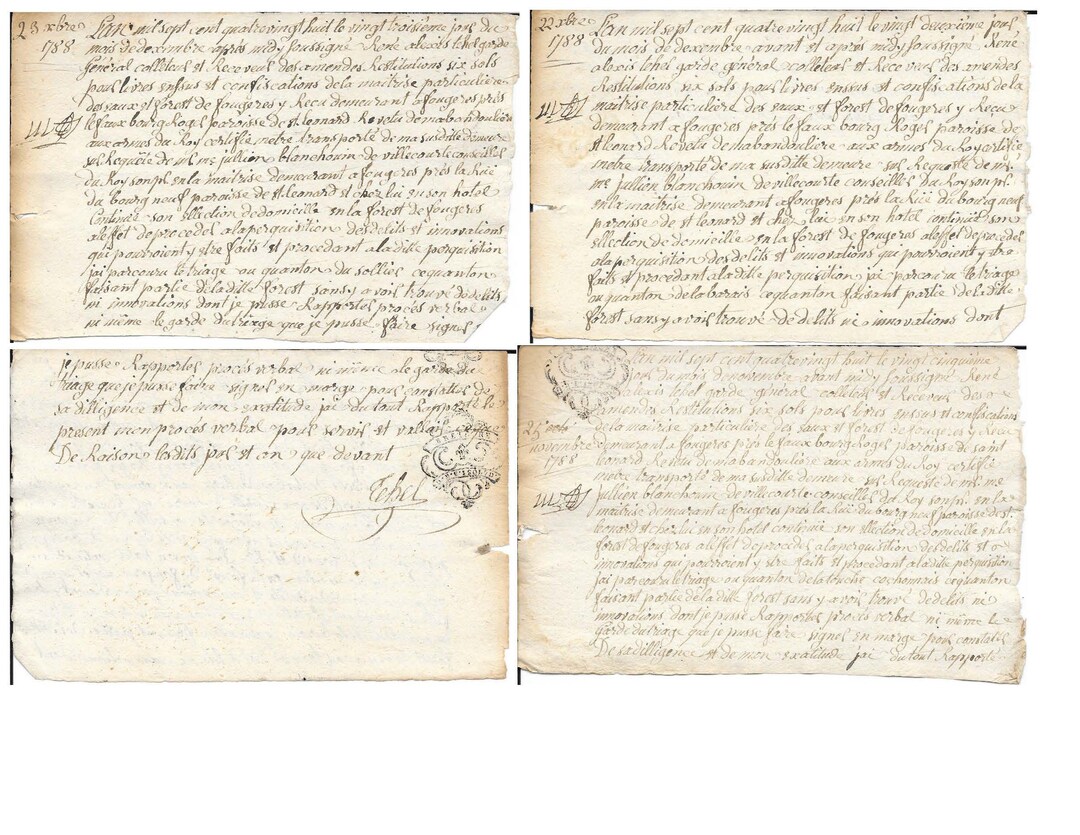 23 xbre
1788
Lan mil sept cent quatrevingt huit le vingt troisième jour du
mois de dexembre après midy soussigné René alexis tehel garde
Général collecteur et Receveur des amendes Restitutions six sols
pour livres ensus et confiscations de la maitrise particuliere
des eaux et forest de fougeres y Recu demeurant a fougeres près
le faux bourg Roger paroisse de st leonard Revêtu de ma bandouliere
aux armes du Roy certifie metre transporté de ma susditte demeure
sur Requête de mr me jullien blanchouin de villecourte conseiller
du Roy son pr en la maitrise demeurant a fougeres près la Rüe
du bourg neuf paroisse de st leonard et chez lui en son hotel
continüe son ellection de domicille en la forest de fougeres
a leffet de proceder a la perquisition des delits et innovations
qui pourroient y etre faits et procedant a la ditte perquisition
jai parcouru le triage ou quanton du sollier ce quanton
faisant partie de la ditte forest sans y avoir trouvé de delits
ni innovations dont je pusse Rapporter procès verbal
ni même le garde du triage que je pusse faire signer
22 xbre
1788
Lan mil sept cent quatrevingt huit le vingt deuxième jour
du mois de dexembre avant et après midy soussigné René
alexis tehel garde général collecteur et Receveur des amendes
Restitutions six sols pour livres ensus et confiscations de la
maitrise particulière des eaux et forest de fougeres y Recu
demeurant a fougeres près le faux bourg Roger paroisse de
st leonard Revetu de ma bandouliere aux armes du Roy certifie
metre transporté de ma susditte demeure sur Requeste de mr
me jullien blanchouin de villecourte conseiller du Roy son pr
en la maitrise demeurant a fougeres près la Rüe du bourg neuf
paroisse de st leonard et chez lui en son hotel continüe son
ellection de domicille en la forest de fougeres a leffet de proceder
a la perquisition des delits et innovations qui pourroient y etre
faits et procedant a la ditte perquisition jai parcouru le triage
ou quanton de la barais ce quanton faisant partie de la ditte
forest sans y avoir trouvé de delits ni innovations dont
je pusse Rapporter procès verbal ni même le garde du
triage que je pusse faire signer en marge pour constatter de
sa dilligence et de mon exatitude jai du tout Rapporté le
present mon procès verbal pour servir et valloir comme
De Raison les dits jour et an que devant
Tehel
25
novembre
1788
Lan mil sept cent quatrevingt huit le vingt cinquieme
jour du mois de novembre avant midy soussigné René
alexis tehel garde général collecteur et Receveur des
amendes Restitutions six sols pour livres ensus et confiscations
de la maitrise particulière des eaux et forest de fougeres y Recu
demeurant a fougeres près le faux bourg Roger paroisse de saint
leonard Revetu de ma bandouliere aux armes du Roy certifie
metre transporté de ma susditte demeure sur Requeste de mr me
jullien blanchouin de villecourte conseiller du Roy son pr en la
maitrise demeurant a fougeres près la Rüe du bourg neuf paroisse de st
leonard et chez lui en son hotel continüe son ellection de domicille en la
forest de fougeres a leffet de proceder a la perquisition des delits et
innovations qui pourroient y etre faits et procedant a la ditte perquisition
jai parcouru le triage ou quanton de la touche cochonnais ce quanton
faisant partie de la ditte forest sans y avoir trouvé de delits ni
innovations dont je pusse Rapporter procès verbal ni même le
garde du triage que je pusse faire signer en marge pour constater
De sa dilligence et de mon exatitude jai du tout Rapporté